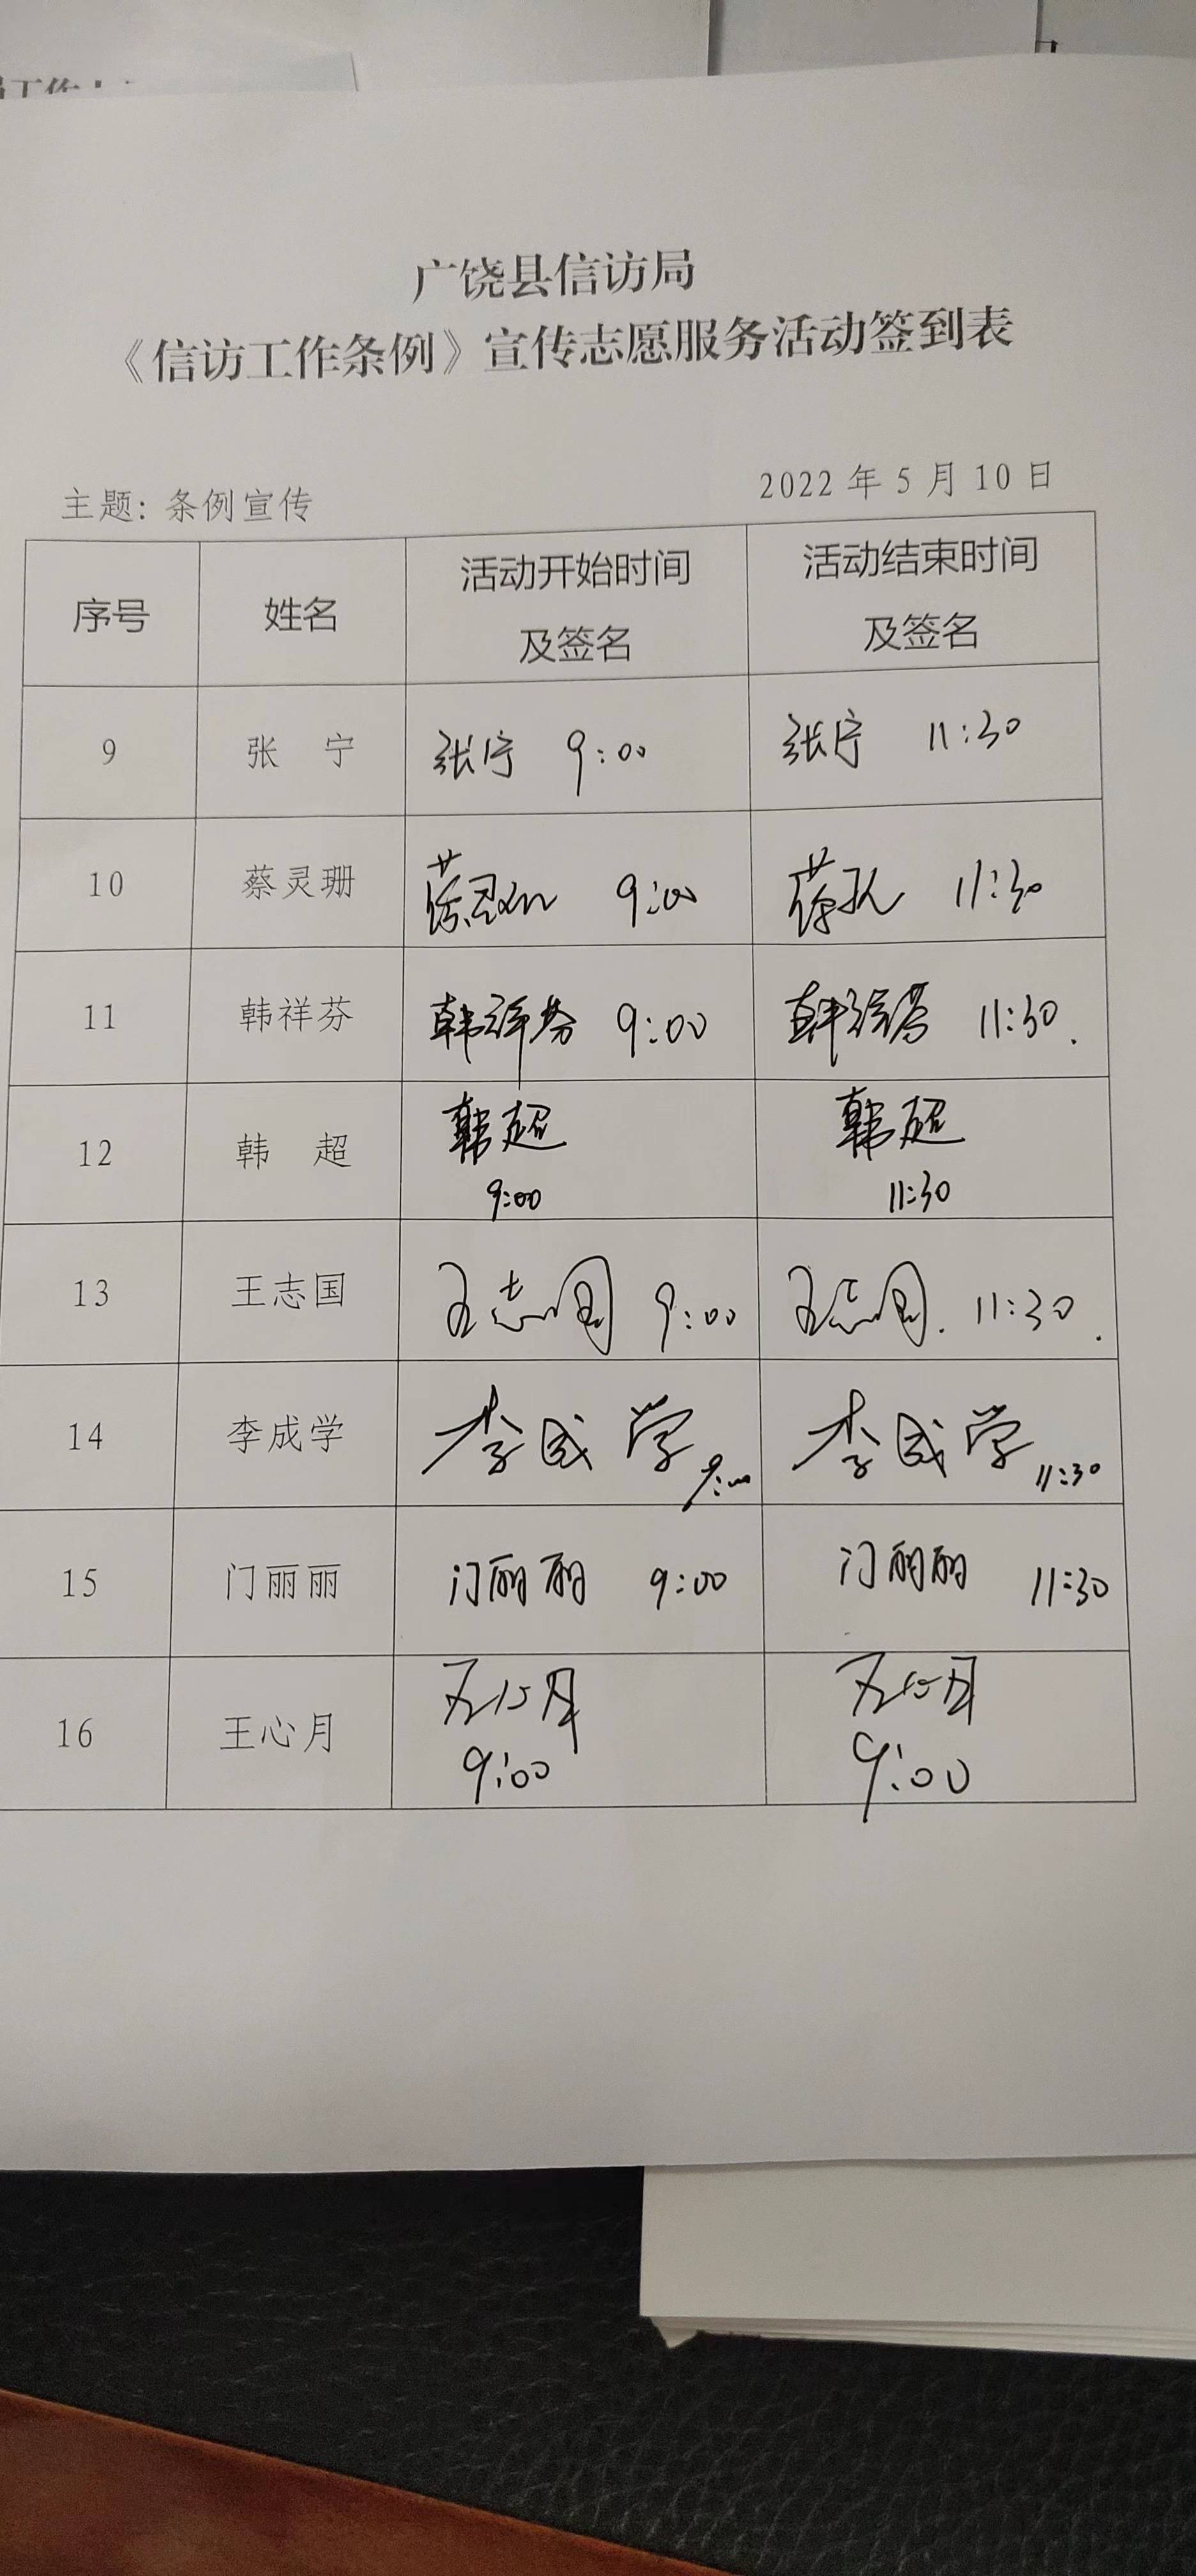 广饶县信访局
《信访工作条例》宣传志愿服务活动签到表
主题：条例宣传 2022年5月10日
序号 姓名 活动开始时间及签名 活动结束时间及签名
9 张 宁 张宁 9:00 张宁 11:30
10 蔡灵珊 蔡灵珊 9:00 11:30
11 韩祥芬 韩祥芬 9:00 韩祥芬 11:30.
12 韩 超 韩超 9:00 韩超 11:30
13 王志国 王志国 9:00 王志国. 11:30.
14 李成学 李成学 9:00 李成学 11:30
15 门丽丽 门丽丽 9:00 门丽丽 11:30
16 王心月 王心月 9:00 王心月 9:00